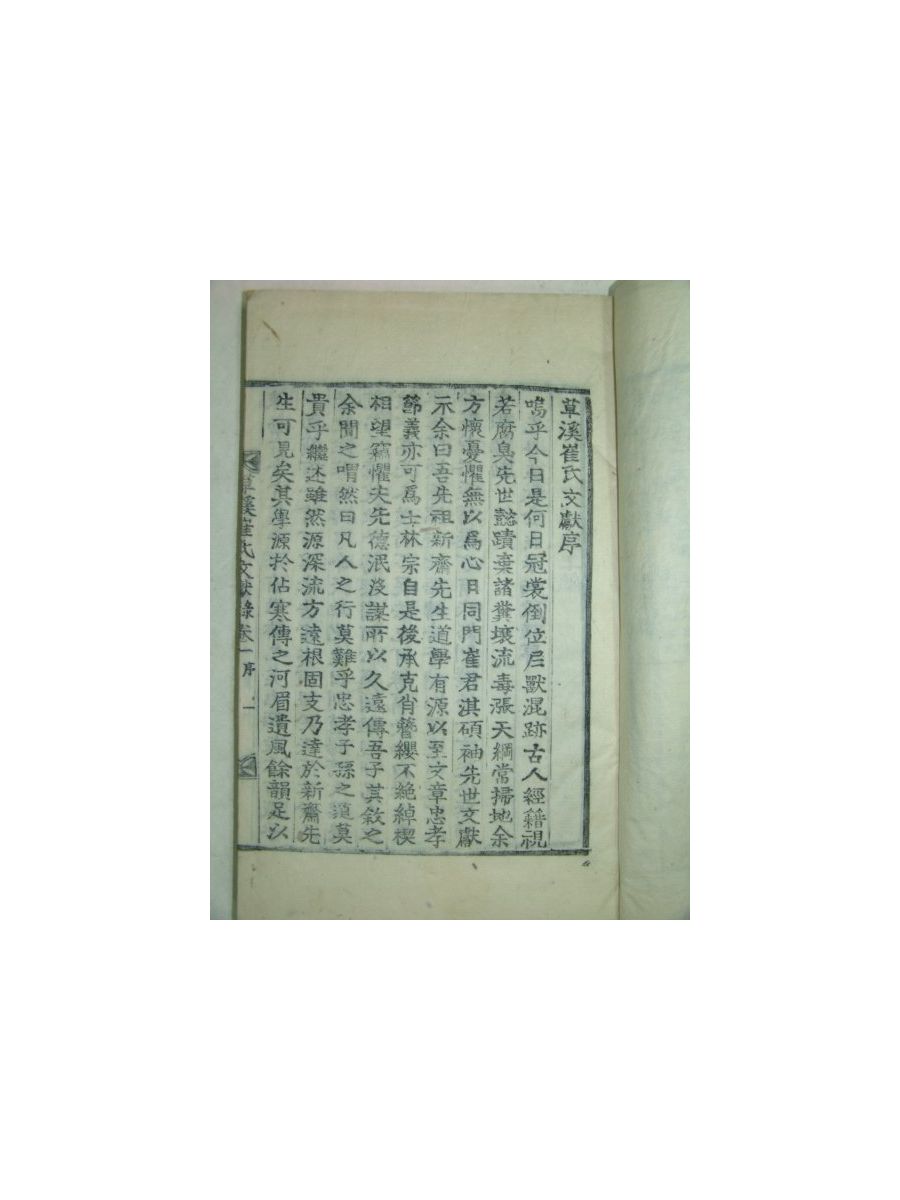 草溪崔氏文獻序
嗚乎今日是何日冠裳倒位尼獸混跡古人經籍視
若腐臭先世懿蹟棄諸糞壤流毒漲天綱常掃地余
方懷憂懼無以爲心日同門崔君淇碩袖先世文獻
示余曰吾先祖新齋先生道學有源以至文章忠孝
節義亦可爲士林宗自是後承克肖簪纓不絶綽楔
相望竊懼夫先德泯沒謀所以久遠傳吾子其敘之
余聞之喟然曰凡人之行莫難乎忠孝子孫之道莫
貴乎繼述雖然源深流方遠根固支乃達於新齋先
生可見矣其學源於佔寒傳之河眉遺風餘韻足以
草溪崔氏文獻錄卷一序 一